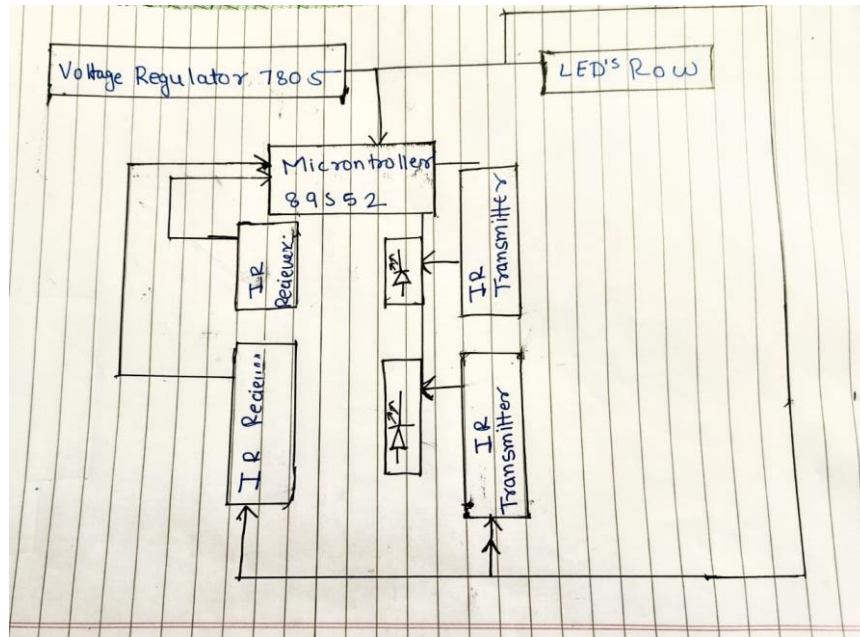 Voltage Regulator 7805
LED'S ROW
Microntroller
89S52
IR
Reciever
IR
Transmitter
IR Reciever
IR
Transmitter